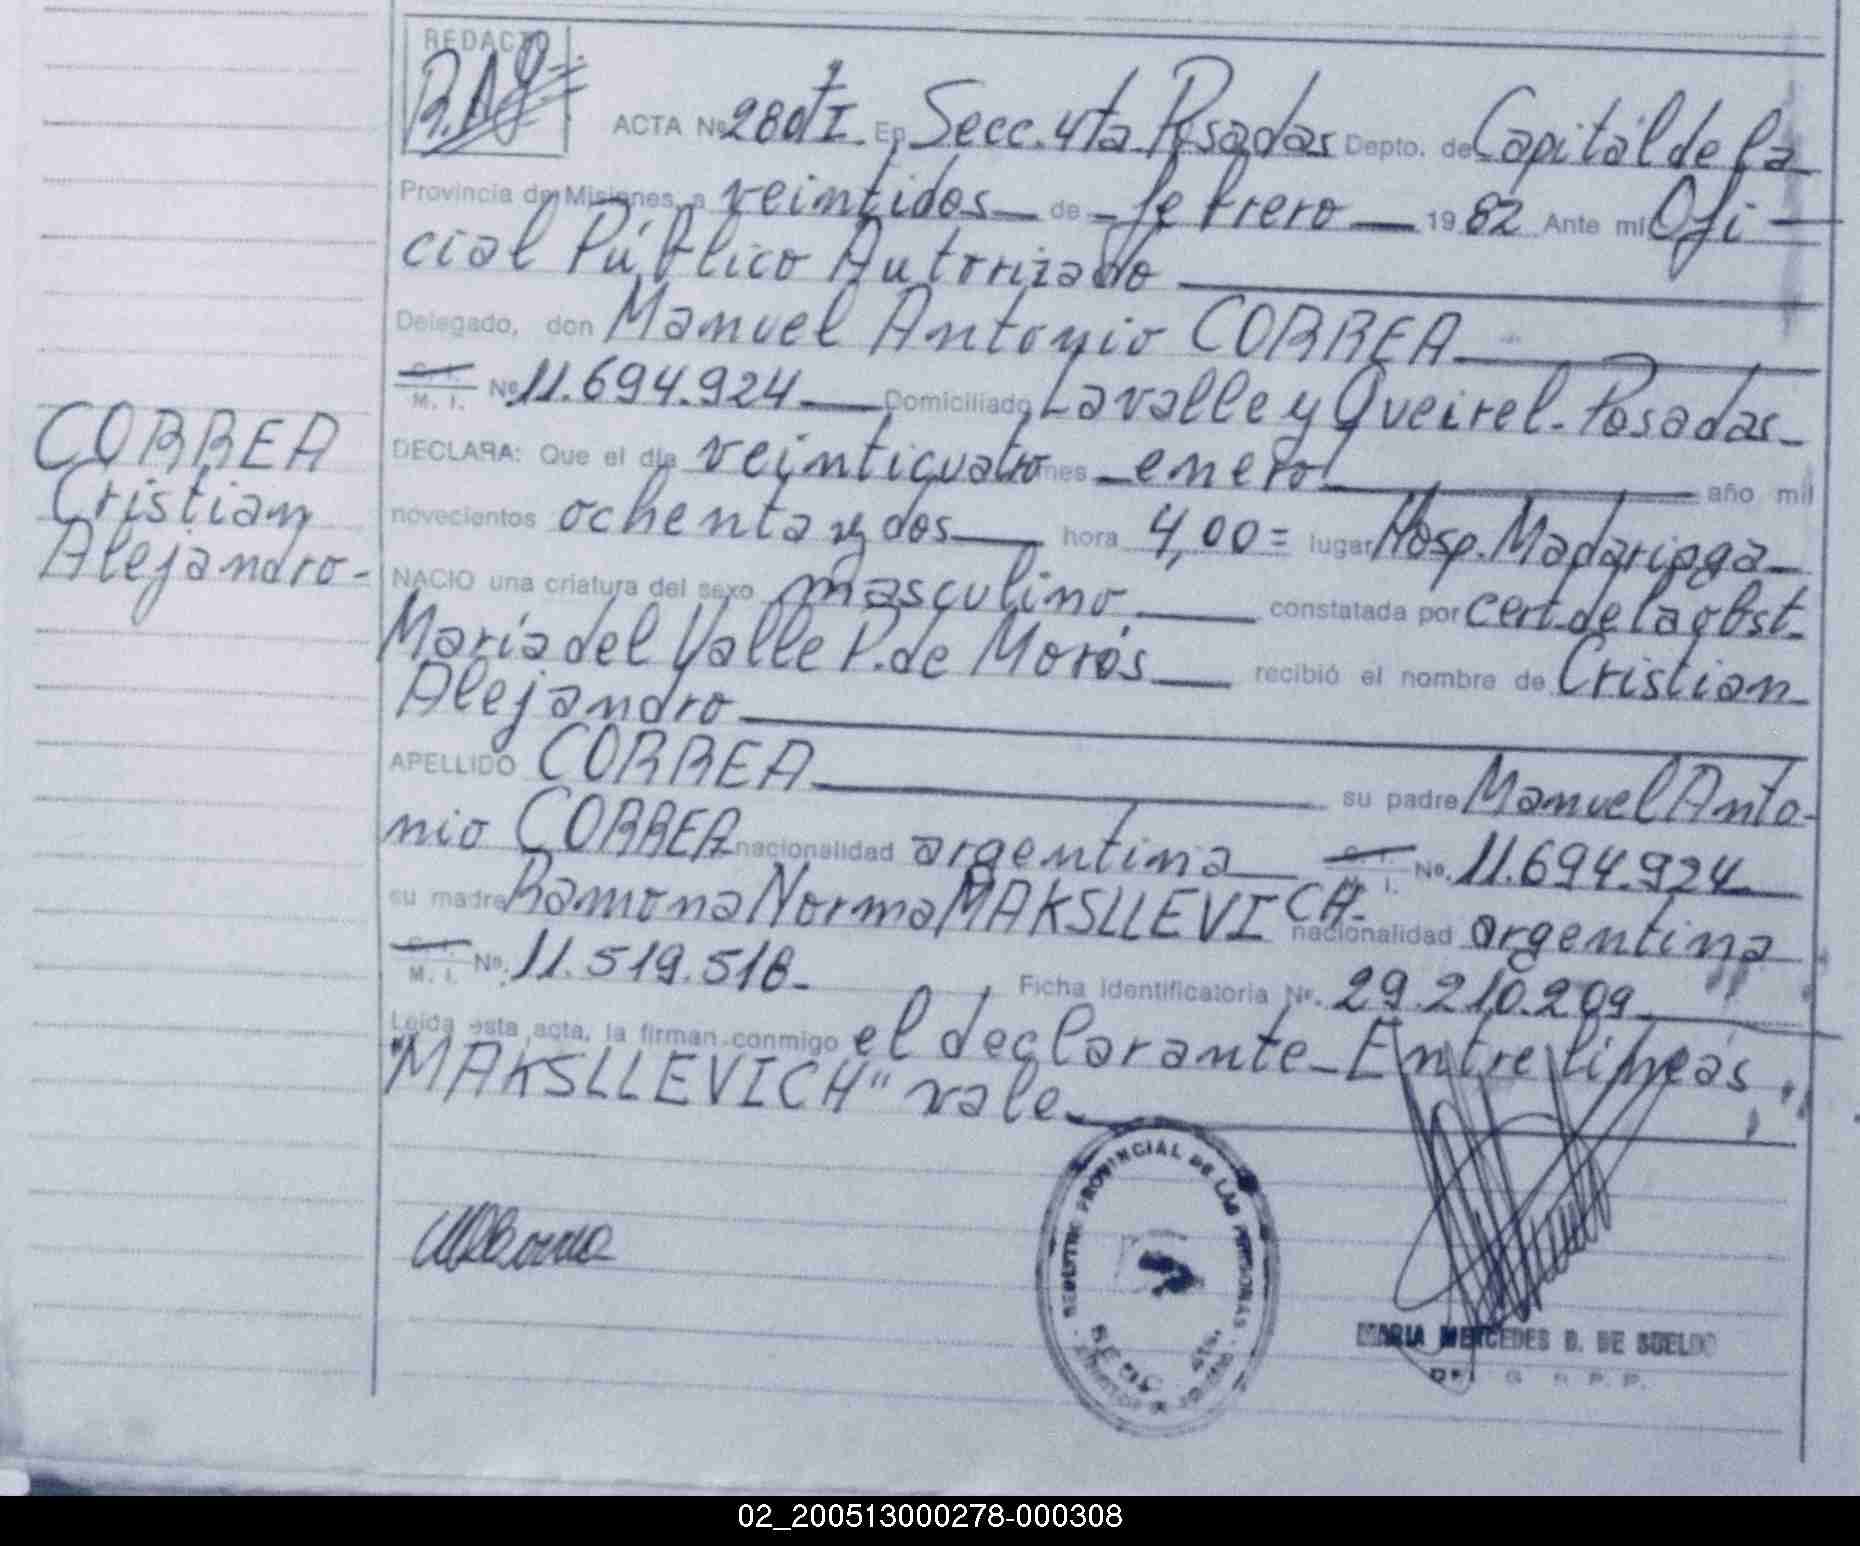 REDACTO
ACTA Nº 280 T I En Secc. 4ta Posadas Depto. de Capital de la
Provincia de Misiones, a veintidos de febrero 1982 Ante mi Ofi
cial Público Autorizado
Delegado, don Manuel Antonio CORREA
C. I. M. I. Nº 11.694.924 Domiciliado Lavalle y Queirel - Posadas
DECLARA: Que el día veinticuatro mes enero año mil
novecientos ochenta y dos hora 4,00= lugar Hosp. Madariaga
NACIO una criatura del sexo masculino constatada por cert. de la obst.
María del Valle P. de Morós recibió el nombre de Cristian
Alejandro
APELLIDO CORREA su padre Manuel Anto-
nio CORREA nacionalidad argentina C. I. M. I. No. 11.694.924
su madre Ramona Norma MAKSLLEVICH nacionalidad argentina
C. I. M. I. No. 11.519.518 Ficha Identificatoria Nº. 29.210.209
Leída esta acta, la firman conmigo el declarante - Entre líneas
"MAKSLLEVICH" vale
CORREA
Cristian
Alejandro
REGISTRO PROVINCIAL DE LAS PERSONAS
SECC. 4ta.
MARIA MERCEDES B. DE SUELDO
02_200513000278-000308